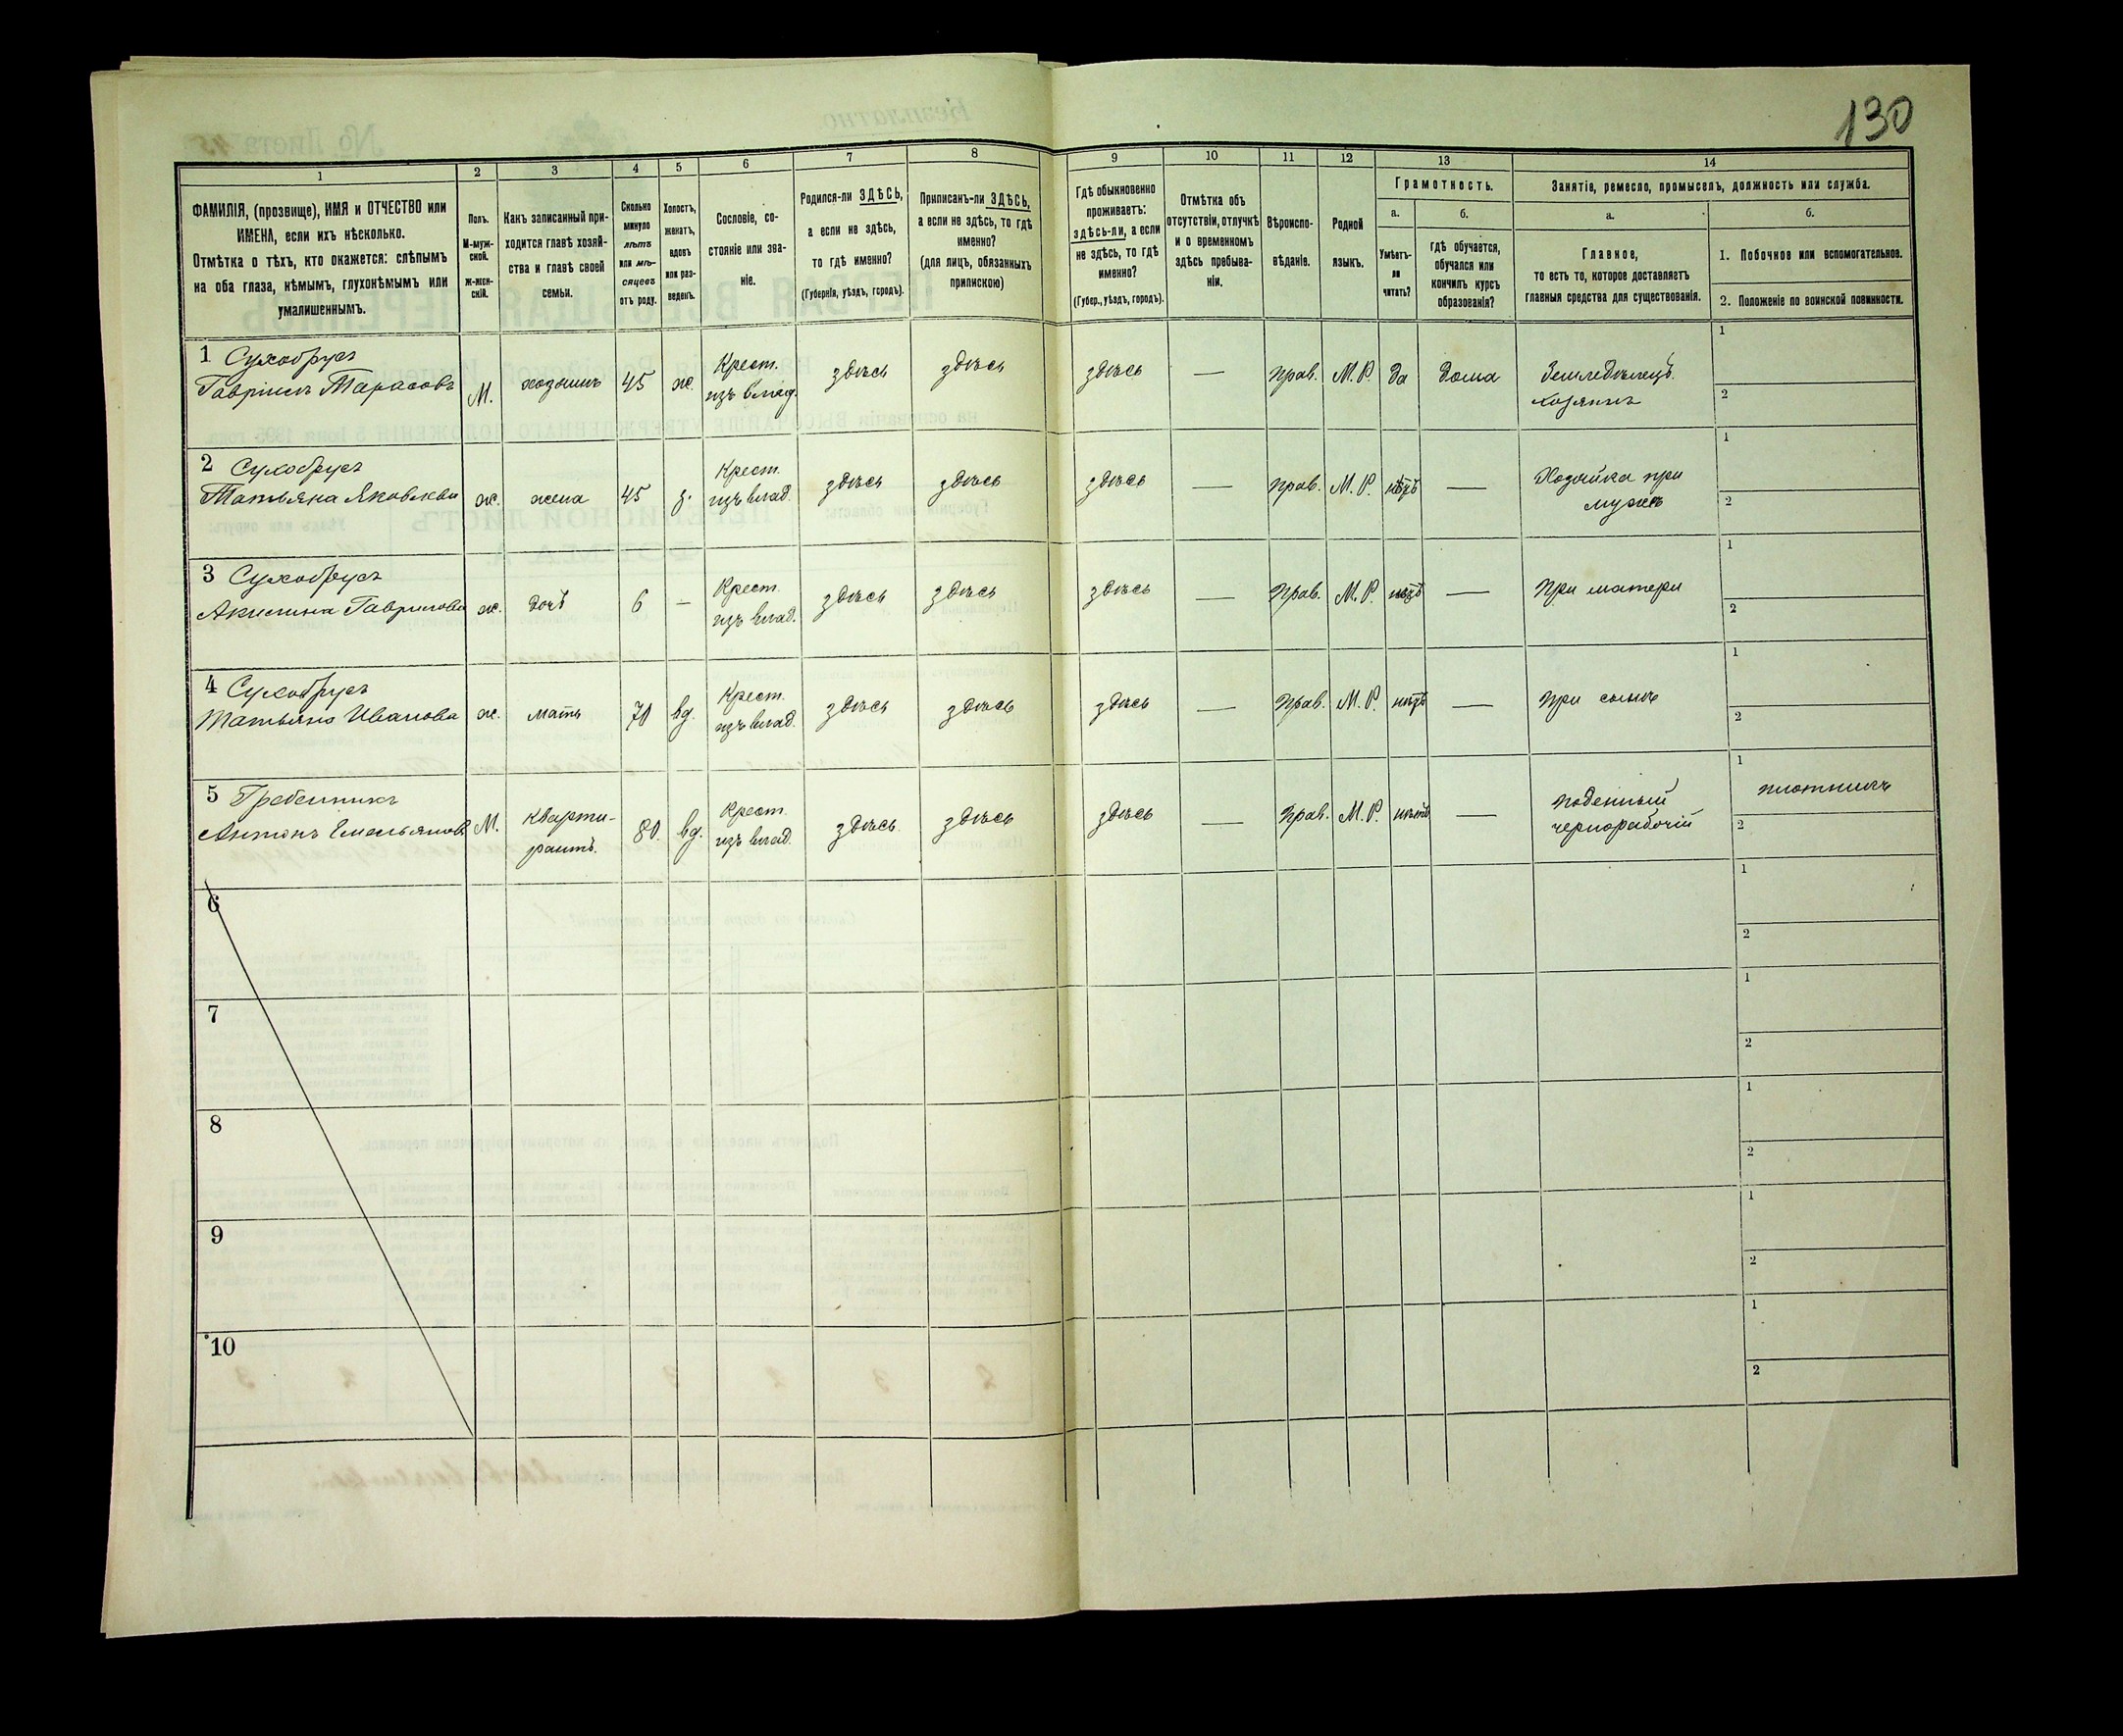 130
1
2
3
4
5
6
7
8
9
10
11
12
13
14
ФАМИЛІЯ, (прозвище), ИМЯ и ОТЧЕСТВО или
ИМЕНА, если ихъ нѣсколько.
Отмѣтка о тѣхъ, кто окажется: слѣпымъ
на оба глаза, нѣмымъ, глухонѣмымъ или
умалишеннымъ.
Полъ.
М-муж-
ской.
Ж-жен-
скій.
Какъ записанный при-
ходится главѣ хозяй-
ства и главѣ своей
семьи.
Сколько
минуло
лѣтъ
или мѣ-
сяцевъ
отъ роду.
Холостъ,
женатъ,
вдовъ
или раз-
веденъ.
Сословіе, со-
стояніе или зва-
ніе.
Родился-ли ЗДѢСЬ,
а если не здѣсь,
то гдѣ именно?
(Губернія, уѣздъ, городъ).
Приписанъ-ли ЗДѢСЬ,
а если не здѣсь, то гдѣ
именно?
(для лицъ, обязанныхъ
припискою)
Гдѣ обыкновенно
проживаетъ:
здѣсь-ли, а если
не здѣсь, то гдѣ
именно?
(Губер., уѣздъ, городъ).
Отмѣтка объ
отсутствіи, отлучкѣ
и о временномъ
здѣсь пребыва-
ніи.
Вѣроиспо-
вѣданіе.
Родной
языкъ.
Грамотность.
а.
Умѣетъ-
ли
читать?
б.
гдѣ обучается,
обучался или
кончилъ курсъ
образованія?
Занятіе, ремесло, промыселъ, должность или служба.
а.
Главное,
то есть то, которое доставляетъ
главныя средства для существованія.
б.
1. Побочное или вспомогательное.
2. Положеніе по воинской повинности.
1 Сухобрусъ
Гавріилъ Тарасовъ
М.
хозяинъ
45
ж.
Крест.
изъ влад.
здѣсь
здѣсь
здѣсь
—
прав.
М.Р.
да
дома
Земледѣлецъ.
хозяинъ
1
2
2 Сухобрусъ
Татьяна Яковлева
ж.
жена
45
з.
Крест.
изъ влад.
здѣсь
здѣсь
здѣсь
—
прав.
М.Р.
нѣтъ
—
Хозяйка при
мужѣ
1
2
3 Сухобрусъ
Акилина Гаврилова
ж.
дочь
6
—
Крест.
изъ влад.
здѣсь
здѣсь
здѣсь
—
прав.
М.Р.
нѣтъ
—
при матери
1
2
4 Сухобрусъ
Татьяна Иванова
ж.
мать
70
вд.
Крест.
изъ влад.
здѣсь
здѣсь
здѣсь
—
прав.
М.Р.
нѣтъ
—
при сынѣ
1
2
5 Гребенникъ
Антонъ Емельяновъ
М.
Кварти-
рантъ.
80.
вд.
Крест.
изъ влад.
здѣсь
здѣсь
здѣсь
—
прав.
М.Р.
нѣтъ
—
поденный
чернорабочій
1
плотникъ
2
6
1
2
7
1
2
8
1
2
9
1
2
10
1
2